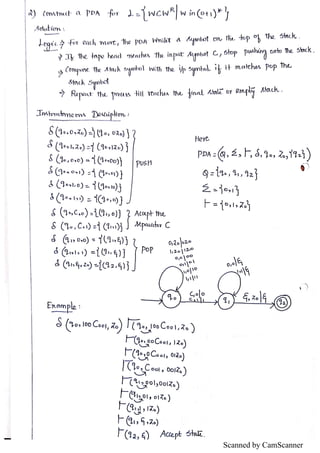 2) Construct a PDA for L = {WCW^R | W in (0+1)*}
Solution:
Logic: → For each move, the PDA writes a symbol on the top of the stack.
→ If the tape head reaches the input symbol C, stop pushing onto the stack.
→ Compare the stack symbol with the i/p symbol, if it matches pop the
stack symbol
→ Repeat the process till reaches the final state or empty stack.
Instantaneous Description:
δ(q0,0,z0) = {(q0,0z0)}
δ(q0,1,z0) = {(q0,1z0)}
δ(q0,0,0) = {(q0,00)}
δ(q0,0,1) = {(q0,01)}
δ(q0,1,0) = {(q0,10)}
PUSH
δ(q0,C,0) = {(q1,0)}
δ(q0,C,1) = {(q1,1)}
Accept the
separator C
POP
Here
PDA = (Q, Σ, Γ, δ, q0, z0, {q2})
Q = {q0, q1, q2}
Σ = {0,1}
Γ = {0,1,z0}
q0
q1
q2
Example:
δ(q0,100C001,z0) ⊢ (q0,100C001,z0)
⊢ (q0,00C001,1z0)
⊢ (q0,0C001,01z0)
⊢ (q0,C001,001z0)
⊢ (q1,001,001z0)
⊢ (q1,01,01z0)
⊢ (q1,1,1z0)
Accept State.
Scanned by CamScanner